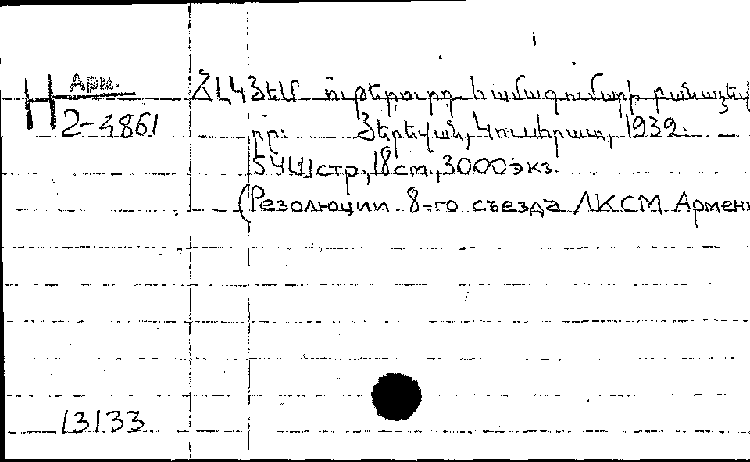 Н Арм.
2-4861
ՀԼԿՅԵՄ ութերորդ համագումարի բանաձև
րը: Յերեվան, Կուսհրատ, 1939.
54 стр, 18 см, 3000 экз.
(Резолюции 8-го съезда ЛКСМ Армен
13133